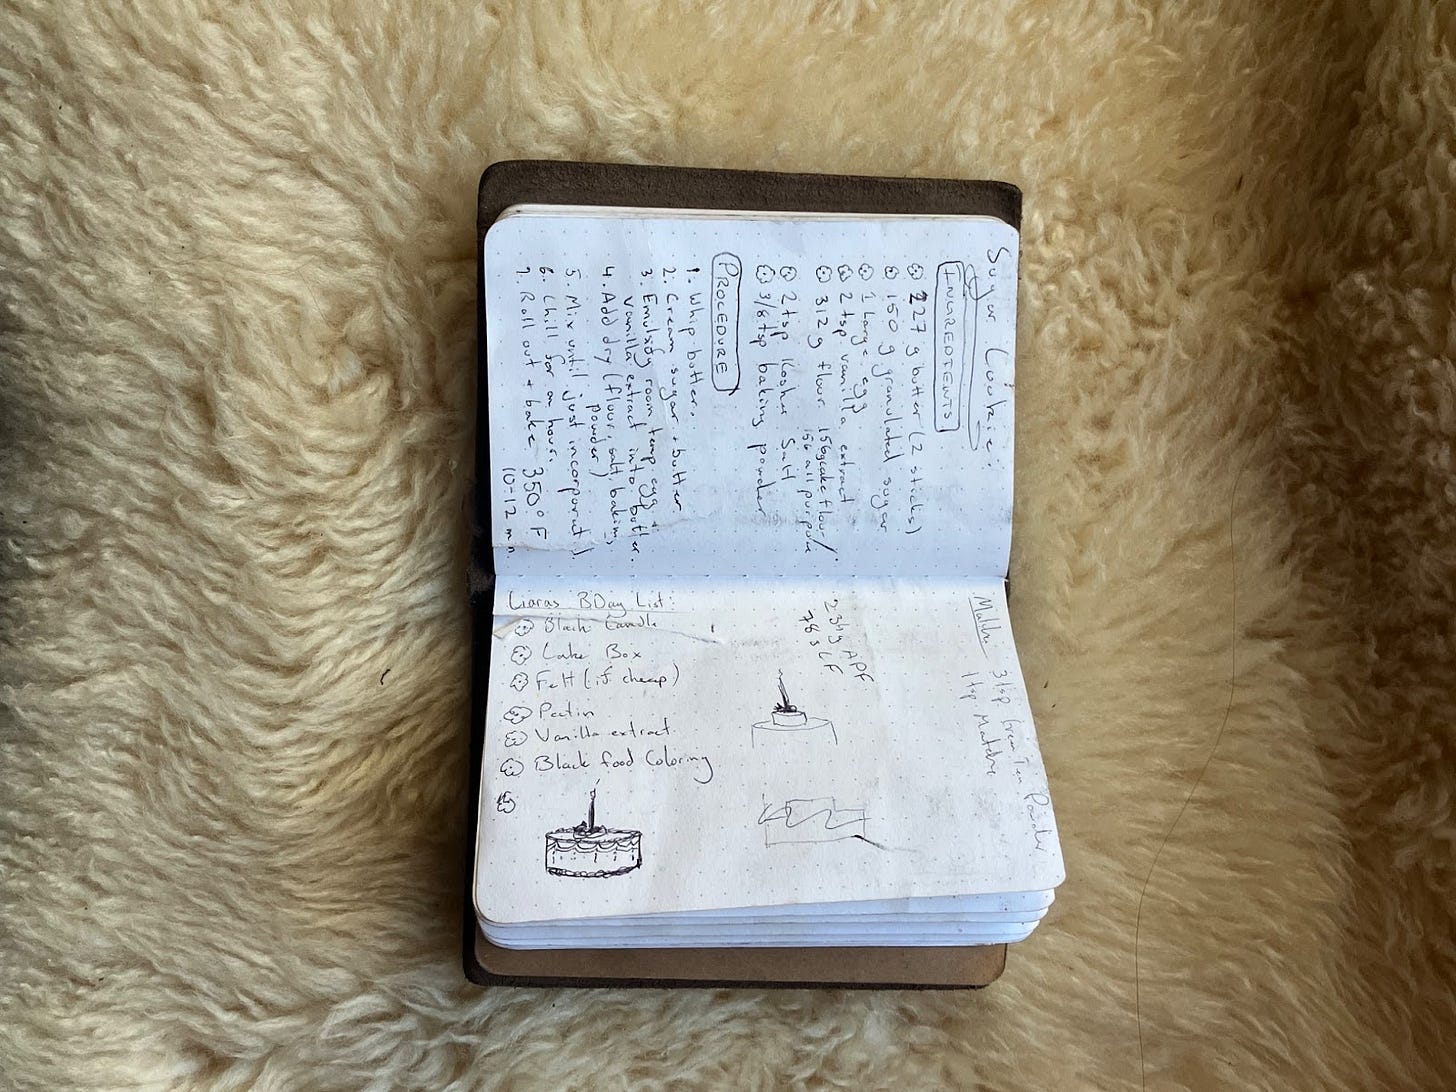 Sugar Cookie:
INGREDIENTS
227 g butter (2 sticks)
150 g granulated sugar
1 large egg
2 tsp vanilla extract
312 g flour 156g cake flour/
156 all purpose
2 tsp Kosher Salt
3/8 tsp baking powder
PROCEDURE
1. Whip butter.
2. Cream sugar + butter
3. Emulsify room temp egg +
vanilla extract into butter.
4. Add dry (flour, salt, baking
powder)
5. Mix until just incorporated
6. Chill for an hour.
7. Roll out + bake 350°F
10-12 min
3 tsp Green Tea Powder
1 tsp
234g APF
78g CF
BDay List:
Black Candle
Cake Box
Felt (if cheap)
Vanilla extract
Black food Coloring